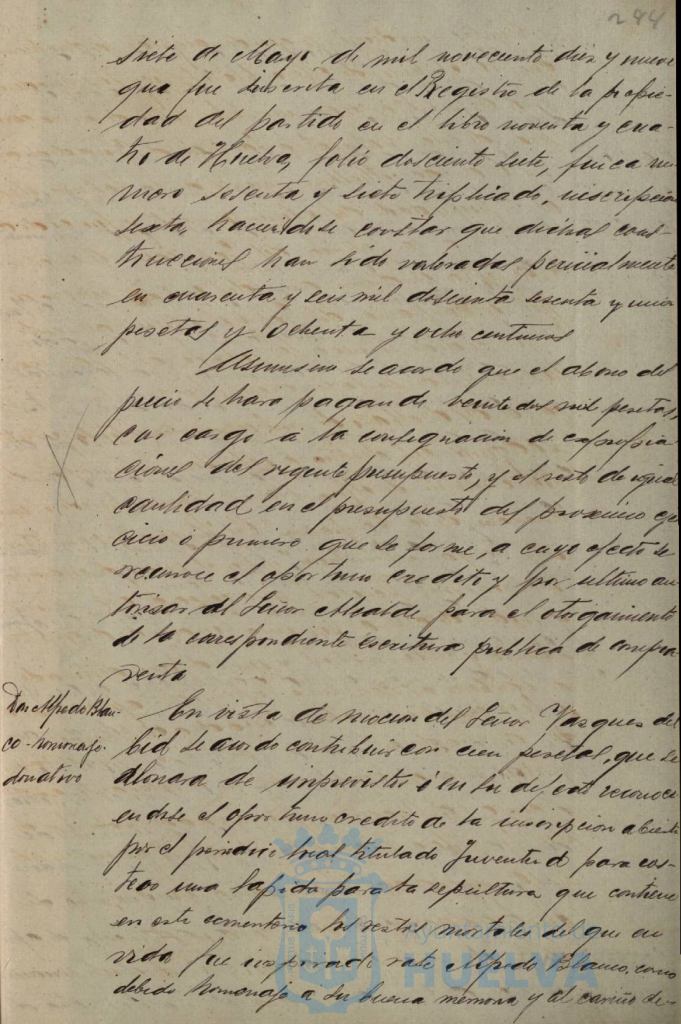 244
siete de Mayo de mil novecientos diez y nueve
que fue inscrita en el Registro de la propie-
dad del partido en el libro noventa y cua-
tro de Huelva, folio doscientos siete, finca nu-
mero sesenta y siete triplicado, inscripcion
sexta, haciendose constar que dichas cons-
trucciones han sido valoradas pericialmente
en cuarenta y seis mil doscientas sesenta y una
pesetas y ochenta y ocho centimos
Asimismo se acordo que el abono del
precio se hara pagando veinte dos mil pesetas,
con cargo á la consignacion de expropia-
ciones del vigente presupuesto, y el resto de igual
cantidad en el presupuesto del proximo eger-
cicio o primero que se forme, a cuyo efecto se
reconoce el oportuno credito y por ultimo au-
torizar al Señor Alcalde para el otorgamiento
de la correspondiente escritura publica de compra
venta
Don Alfredo Blan-
co-homenaje-
donativo
En vista de mocion del Señor Vazquez del
Cid se acordo contribuir con cien pesetas, que se
abonara de imprevistos ó en su defecto reconoci-
endose el oportuno credito de la suscripcion abierta
por el periodico local titulado Juventud para cos-
tear una lapida para la sepultura que contiene
en este cementerio los restos mortales del que en
vida fue inspirado vate Alfredo Blanco, como
debido homenaje a su buena memoria y al cariño de-
HUELVA